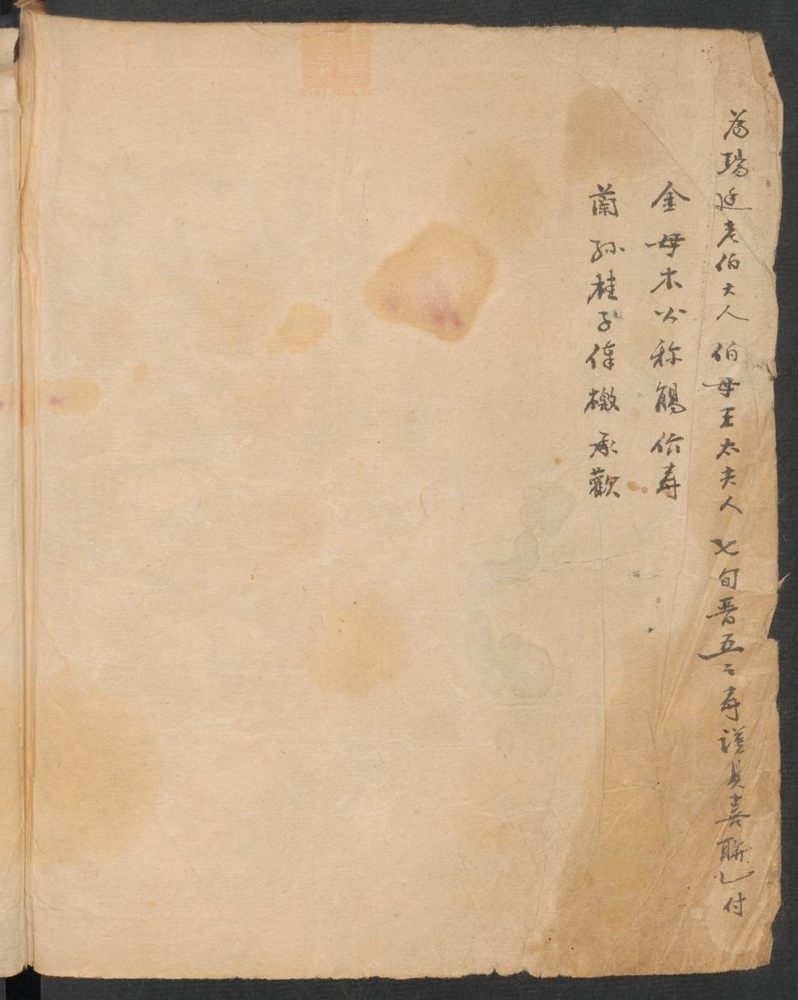 為瑞廷老伯大人 伯母王太夫人 七旬晋五之寿謹具喜联乙付
金母木公称觴介寿
蘭孙桂子 承歡